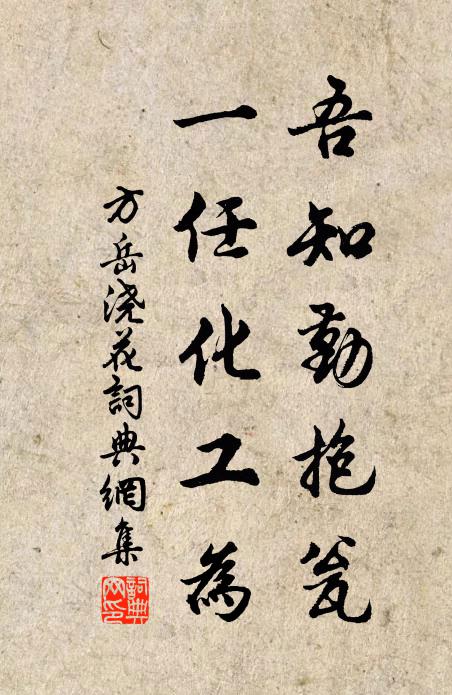 吾知勤抱瓮
一任化工為
方岳浇花詞典網集
詞典网印